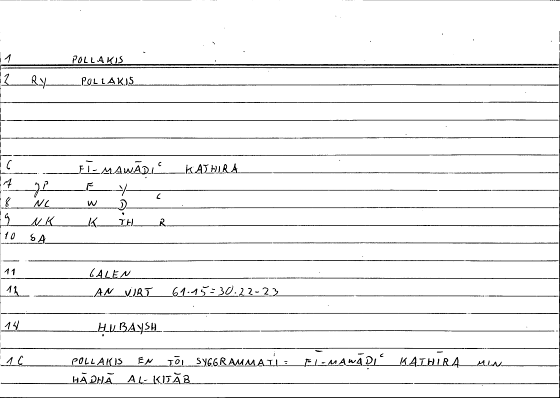 1 POLLAKIS
2 Ry POLLAKIS
6 FĪ-MAWĀḌIʿ KATHIRA
7 JP F Y
8 NL W Ḍ ʿ
9 NK K TH R
10 SA
11 GALEN
12 AN VIRT 61.15=30.22-23
14 ḤUBAYSH
16 POLLAKIS EN TŌI SYGGRAMMATI = FĪ-MAWĀḌIʿ KATHĪRA MIN
HĀDHĀ AL-KITĀB